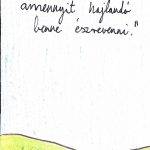 amennyit hajlandó
benne észrevenni."